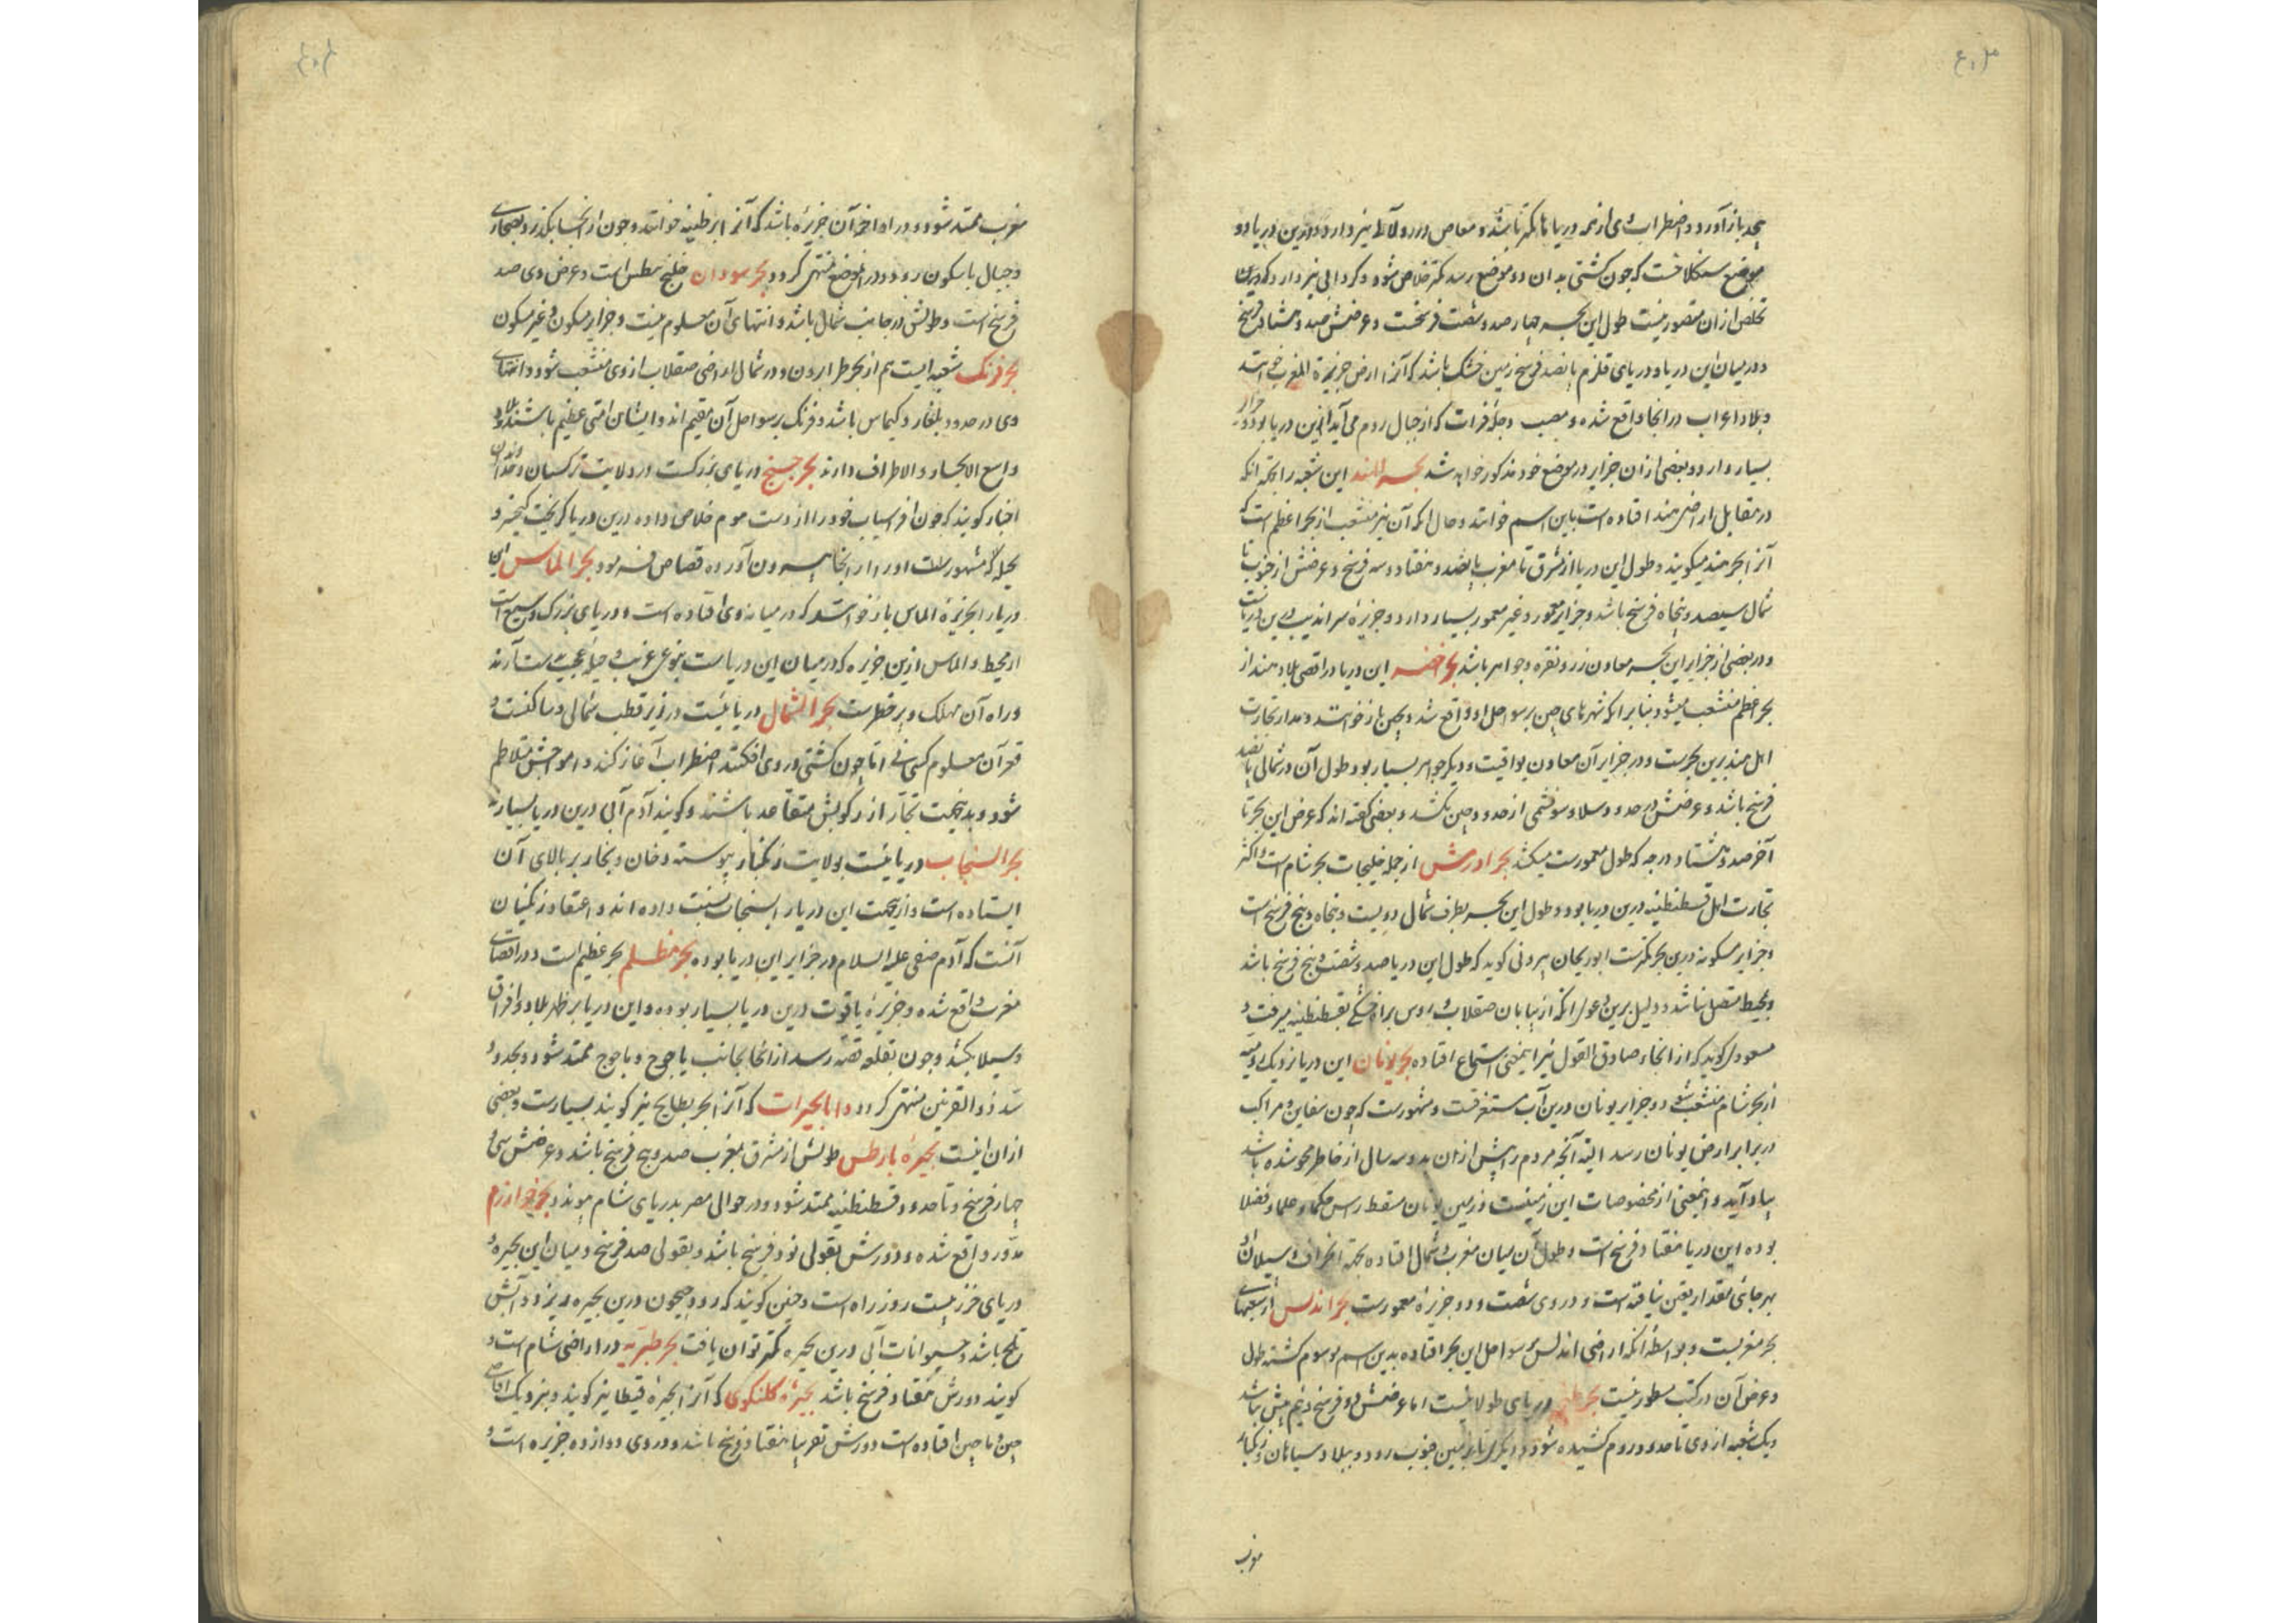 بحد باز آورد و اضطراب وی از همه دریاها کمتر باشد و مغاص در و لآلی نیز دارد و درین دریا دو
موضع سنکلاخست که چون کشتی بدان دو موضع رسد کمتر خلاص شود و کردابی نیز دارد که درین
تخلص ازان متصور نیست طول این بحر چهار صد و شصت فرسخست و عرضش صد و هشتاد فرسخ
و در میان این دریا و دریای قلزم پانصد فرسخ زمین خشک باشد که آنرا ارض جزیرة المغرب خوانند
و بلاد اعراب در انجا واقع شده و مصب دجله و فرات که از جبال روم می آید این دریا بود و جزایر
بسیار دارد و بعضی ازان جزایر در موضع خود مذکور خواهد شد بحر الهند این شعبه را بجهة انکه
در مقابل اراضی هند افتاده است باین اسم خوانند و حال انکه آن نیز منشعب از بحر اعظم است که
آنرا بحر هند میکویند و طول این دریا از مشرق تا مغرب پانصد و هفتاد و سه فرسخ و عرضش از جنوب تا
شمال سیصد و پنجاه فرسخ باشد و جزایر معمور و غیر معمور بسیار دارد و جزیرهٔ سراندیب درین دریاست
و در بعضی از جزایر این بحر معادن زر و نقره و جواهر باشد بحر اخضر این دریا در اقصی بلاد هند از
بحر اعظم منشعب میشود بنا برانکه شهرهای چین بر سواحل او واقع شده بچین باز خوانند و مدار تجارت
اهل هند برین بحرست و در جزایر آن معادن یواقیت و دیکر جواهر بسیار بود و طول آن در شمالی پانصد
فرسخ باشد و عرضش در حدود و سلا و سوفنمی از حدود چین بکشد و بعضی کفته اند که عرض این بحر تا
آخر صد و هشتاد درجه که طول معمورست میکشد بحر ادرنس از جمله خلیجات بحر شام است و اکثر
تجارت اهل قسطنطنیه درین دریا بود و طول این بحر بطرف شمال دویست و پنجاه و پنج فرسخ است
و جزایر مسکونه درین بحر بکثرت ابوریحان بیرونی کوید که طول این دریا صد و شصت و پنج فرسخ باشد
و بمحیط متصل نباشد و دلیل برین دعوی انکه از بیابان صقلاب و روس براه خشکی بقسطنطنیه میرفت و
مسعودی کوید که از انجاء صادق القول نیز اینمعنی استماع افتاده بحر یونان این دریا نزدیک رومیه
از بحر شام منشعب شود و جزایر یونان درین آب مستغرقست و مشهورست که چون سفاین و مراکب
در برابر ارض یونان رسد البته آنچه مردم را پیش ازان بدو سه سال از خاطر محو شده باشد
بیاد آید و اینمعنی از مخصوصات این زمینست و زمین یونان مسقط راس حکما و علما و فضلا
بوده این دریا هفتاد فرسخ است و طول آن میان مغرب و شمال افتاده بجهة انحراف و سیلان او
بهر جائی مقدار یقین نیافته است و در وی شصت و دو جزیرهٔ معمورست بحر اندلس از شعبهای
بحر مغربست و بواسطهٔ انکه اراضی اندلس بر سواحل این بحر افتاده بدین اسم موسوم کشته طول
و عرض آن در کتب مسطور نیست بحر دریای طولانیست اما عرضش دو فرسخ و نیم بیش نباشد
و یک شعبه از وی تا حدود روم کشیده شود و دیکری تا بزمین جنوب رود و ببلاد سیاهان و زنکبار
مغرب
مغرب ممتد شود و در اواخر آن جزیره باشد که آنرا برطینه خوانند و چون از انجا بکذرد بصحاری
و جبال نامسکون رود و در انموضع منتهی کردد بحر سودان خلیج مطبس است و عرض وی صد
فرسخ است و طولش در جانب شمال باشد و انتهای آن معلوم نیست و جزایر مسکون و غیر مسکون
بحر فرنک شعبه ایست هم از بحر طرابرون و در شمال اراضی صقلاب از وی منشعب شود و انتهای
وی در حدود بلغار و کیماس باشد و فرنک بر سواحل آن مقیم اند و ایشان امتی عظیم باشند و بلاد
واسع الابحار و الاطراف دارند بحر چنج دریای بزرکست در ولایت ترکستان و خداوندان
اخبار کویند که چون افراسیاب خود را از دست هوم خلاصی داده درین دریا کریخت کیخسرو
بحیله که مشهورست او را از انجا بیرون آورده قصاص فرمود بحر الماس این
دریا را بجزیرهٔ الماس باز خوانند که در میانه وی افتاده است و دریای بزرک و وسیع است
از محیط و الماس ازین جزیره که در میان این دریاست بنوعی غریب و حیلهٔ عجیب بدست آرند
و راه آن مهلک و پر خطرست بحر الشمال دریائیست در زیر قطب شمالی و مسافت و
قعر آن معلوم کسی نی اما چون کشتی در وی افکنند اضطراب آغاز کند و امواجش متلاطم
شود و بدینجهت تجار از رکوبش متقاعد باشند و کویند آدم آبی درین دریا بسیارست
بحر السنجاب دریائیست بولایت زنکبار پیوسته دخان و بخار بر بالای آن
ایستاده است و ازینجهت این دریا را بسنجاب نسبت داده اند و اعتقاد زنکیان
آنست که آدم صفی علیه السلام در جزایر این دریا بوده بحر مظلم بحر عظیم است و در اقصای
مغرب واقع شده و جزیرهٔ یاقوت درین دریا بسیار بوده و این دریا بر ظهر بلاد و افراق
و سیلا بکشد و چون بقلعه فضه رسد از انجا بجانب یاجوج و ماجوج ممتد شود و بحدود
سد ذو القرنین منتهی کردد و اما بحیرات که آنرا بحر بطایح نیز کویند بسیارست و بعضی
ازان اینست بحیرهٔ بارطس طولش از مشرق بمغرب صد و پنج فرسخ باشد و عرضش سی و
چهار فرسخ و تا حدود قسطنطنیه ممتد شود و در حوالی مصر بدریای شام پیوندد بحر خوارزم
مدور واقع شده و دورش بقولی نود فرسخ باشد و بقولی صد فرسخ و میان این بحیره و
دریای خزر بیست روز راه است و چنین کویند که رود جیحون درین بحیره میریزد و آبش
تلخ باشد و حیوانات آبی درین بحیره کمتر توان یافت بحر طبریه در اراضی شام است و
کویند دورش هفتاد فرسخ باشد بحیرهٔ کلنکوی که آنرا بحیرهٔ قیطا نیز کویند و بنزدیک اقاصی
چین و ماچین افتاده است دورش تقریبا هفتاد فرسخ باشد و در وی دوازده جزیره است و